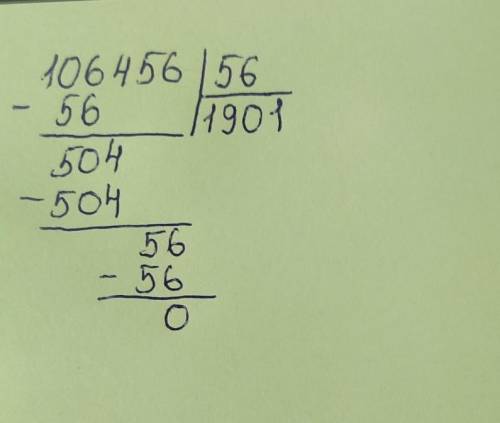 106456 | 56
- 56 | 1901
504
- 504
56
- 56
0